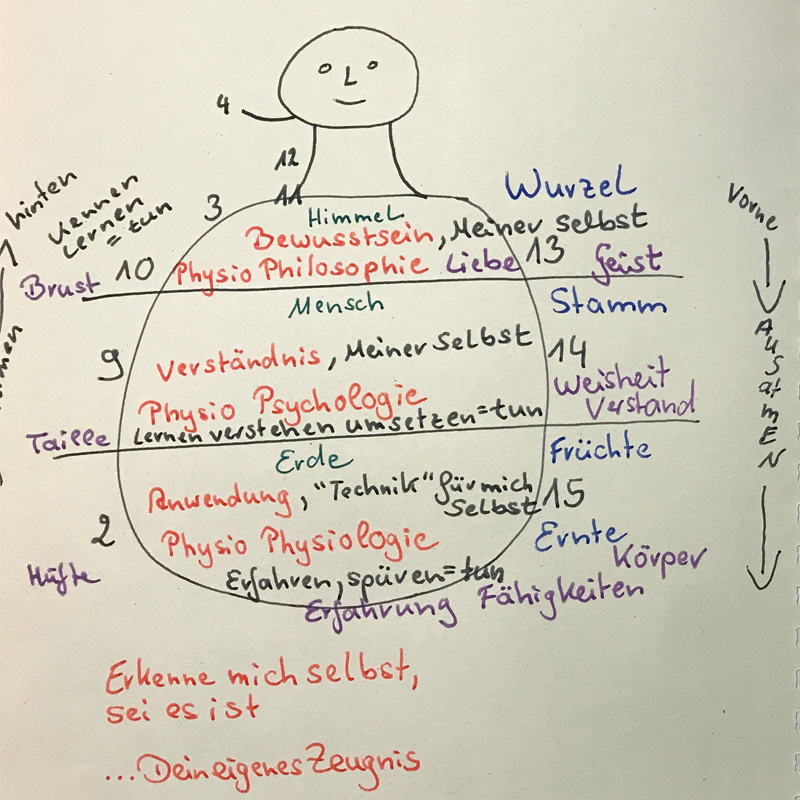 4
12
11
3
hinten
Kennen
Lernen
= tun
Wurzel
Vorne
Himmel
Bewusstsein, Meiner selbst
Brust 10 Physio Philosophie Liebe 13 Geist
Mensch
Stamm
9 Verständnis, Meiner Selbst 14
Physio Psychologie
Weisheit
Verstand
Ausatmen
Taille Lernen verstehen umsetzen=tun
Erde
Früchte
Anwendung, "Technik" für mich
Selbst 15
2 Physio Physiologie
Ernte
Körper
Hüfte
Erfahren, spüren=tun
Erfahrung Fähigkeiten
Erkenne mich selbst,
sei es ist
...Dein eigenes Zeugnis